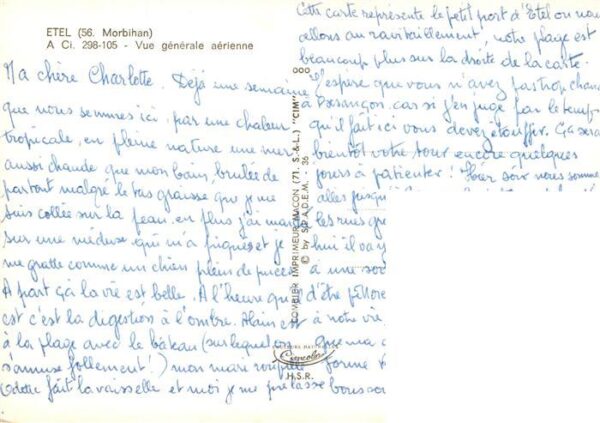 ETEL (56. Morbihan)
A Ci. 298-105 - Vue générale aérienne
Ma chère Charlotte. Déjà une semaine
que nous sommes ici, par une chaleur
tropicale, en pleine nature une mer
aussi chaude que mon bain, brulée de
partout malgré le tas graisse que je me
suis collée sur la peau, en plus j'ai marché
sur une méduse qui m'a piquée et je
me gratte comme un chien plein de puces
A part ça la vie est belle. A l'heure qu'
est c'est la digestion à l'ombre. Alain est
à la plage avec le bateau (sur lequel on
s'amuse follement!) mon mari roupille
Odette fait la vaisselle et moi je me prélasse
COMBIER IMPRIMEUR MACON (71. S.&L.) "CIM"
© by S.P.A.D.E.M. 36
Cimcolor
H.S.R.
Cette carte représente le petit port d'Etel ou nous
allons au ravitaillement, notre plage est
beaucoup plus sur la droite de la carte.
J'espère que vous n'avez pas trop chaud
à Besançon, car si j'en juge par le temps
qu'il fait ici vous devez étouffer. Ça sera
bientôt votre tour encore quelques
jours à patienter! hier soir nous sommes
allés jusqu
les rues
hui il va y
à une
d'être
à notre vie
que ma
forme